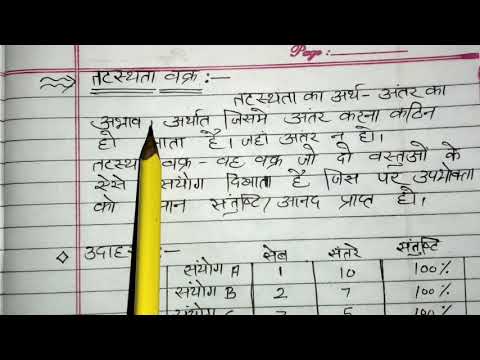 Page:
तटस्थता वक्र :—
तटस्थता का अर्थ - अंतर का
अभाव, अर्थात जिसमे अंतर करना कठिन
हो जाता है। जहां अंतर न हो।
वक्र - वह वक्र जो दो वस्तुओं के
ऐसे संयोग दिखाता है जिस पर उपभोक्ता
को संतुष्टि/आनंद प्राप्त हो।
:-
सेब संतरे संतुष्टि
संयोग A 1 10 100%
संयोग B 2 7 100%
5 100%